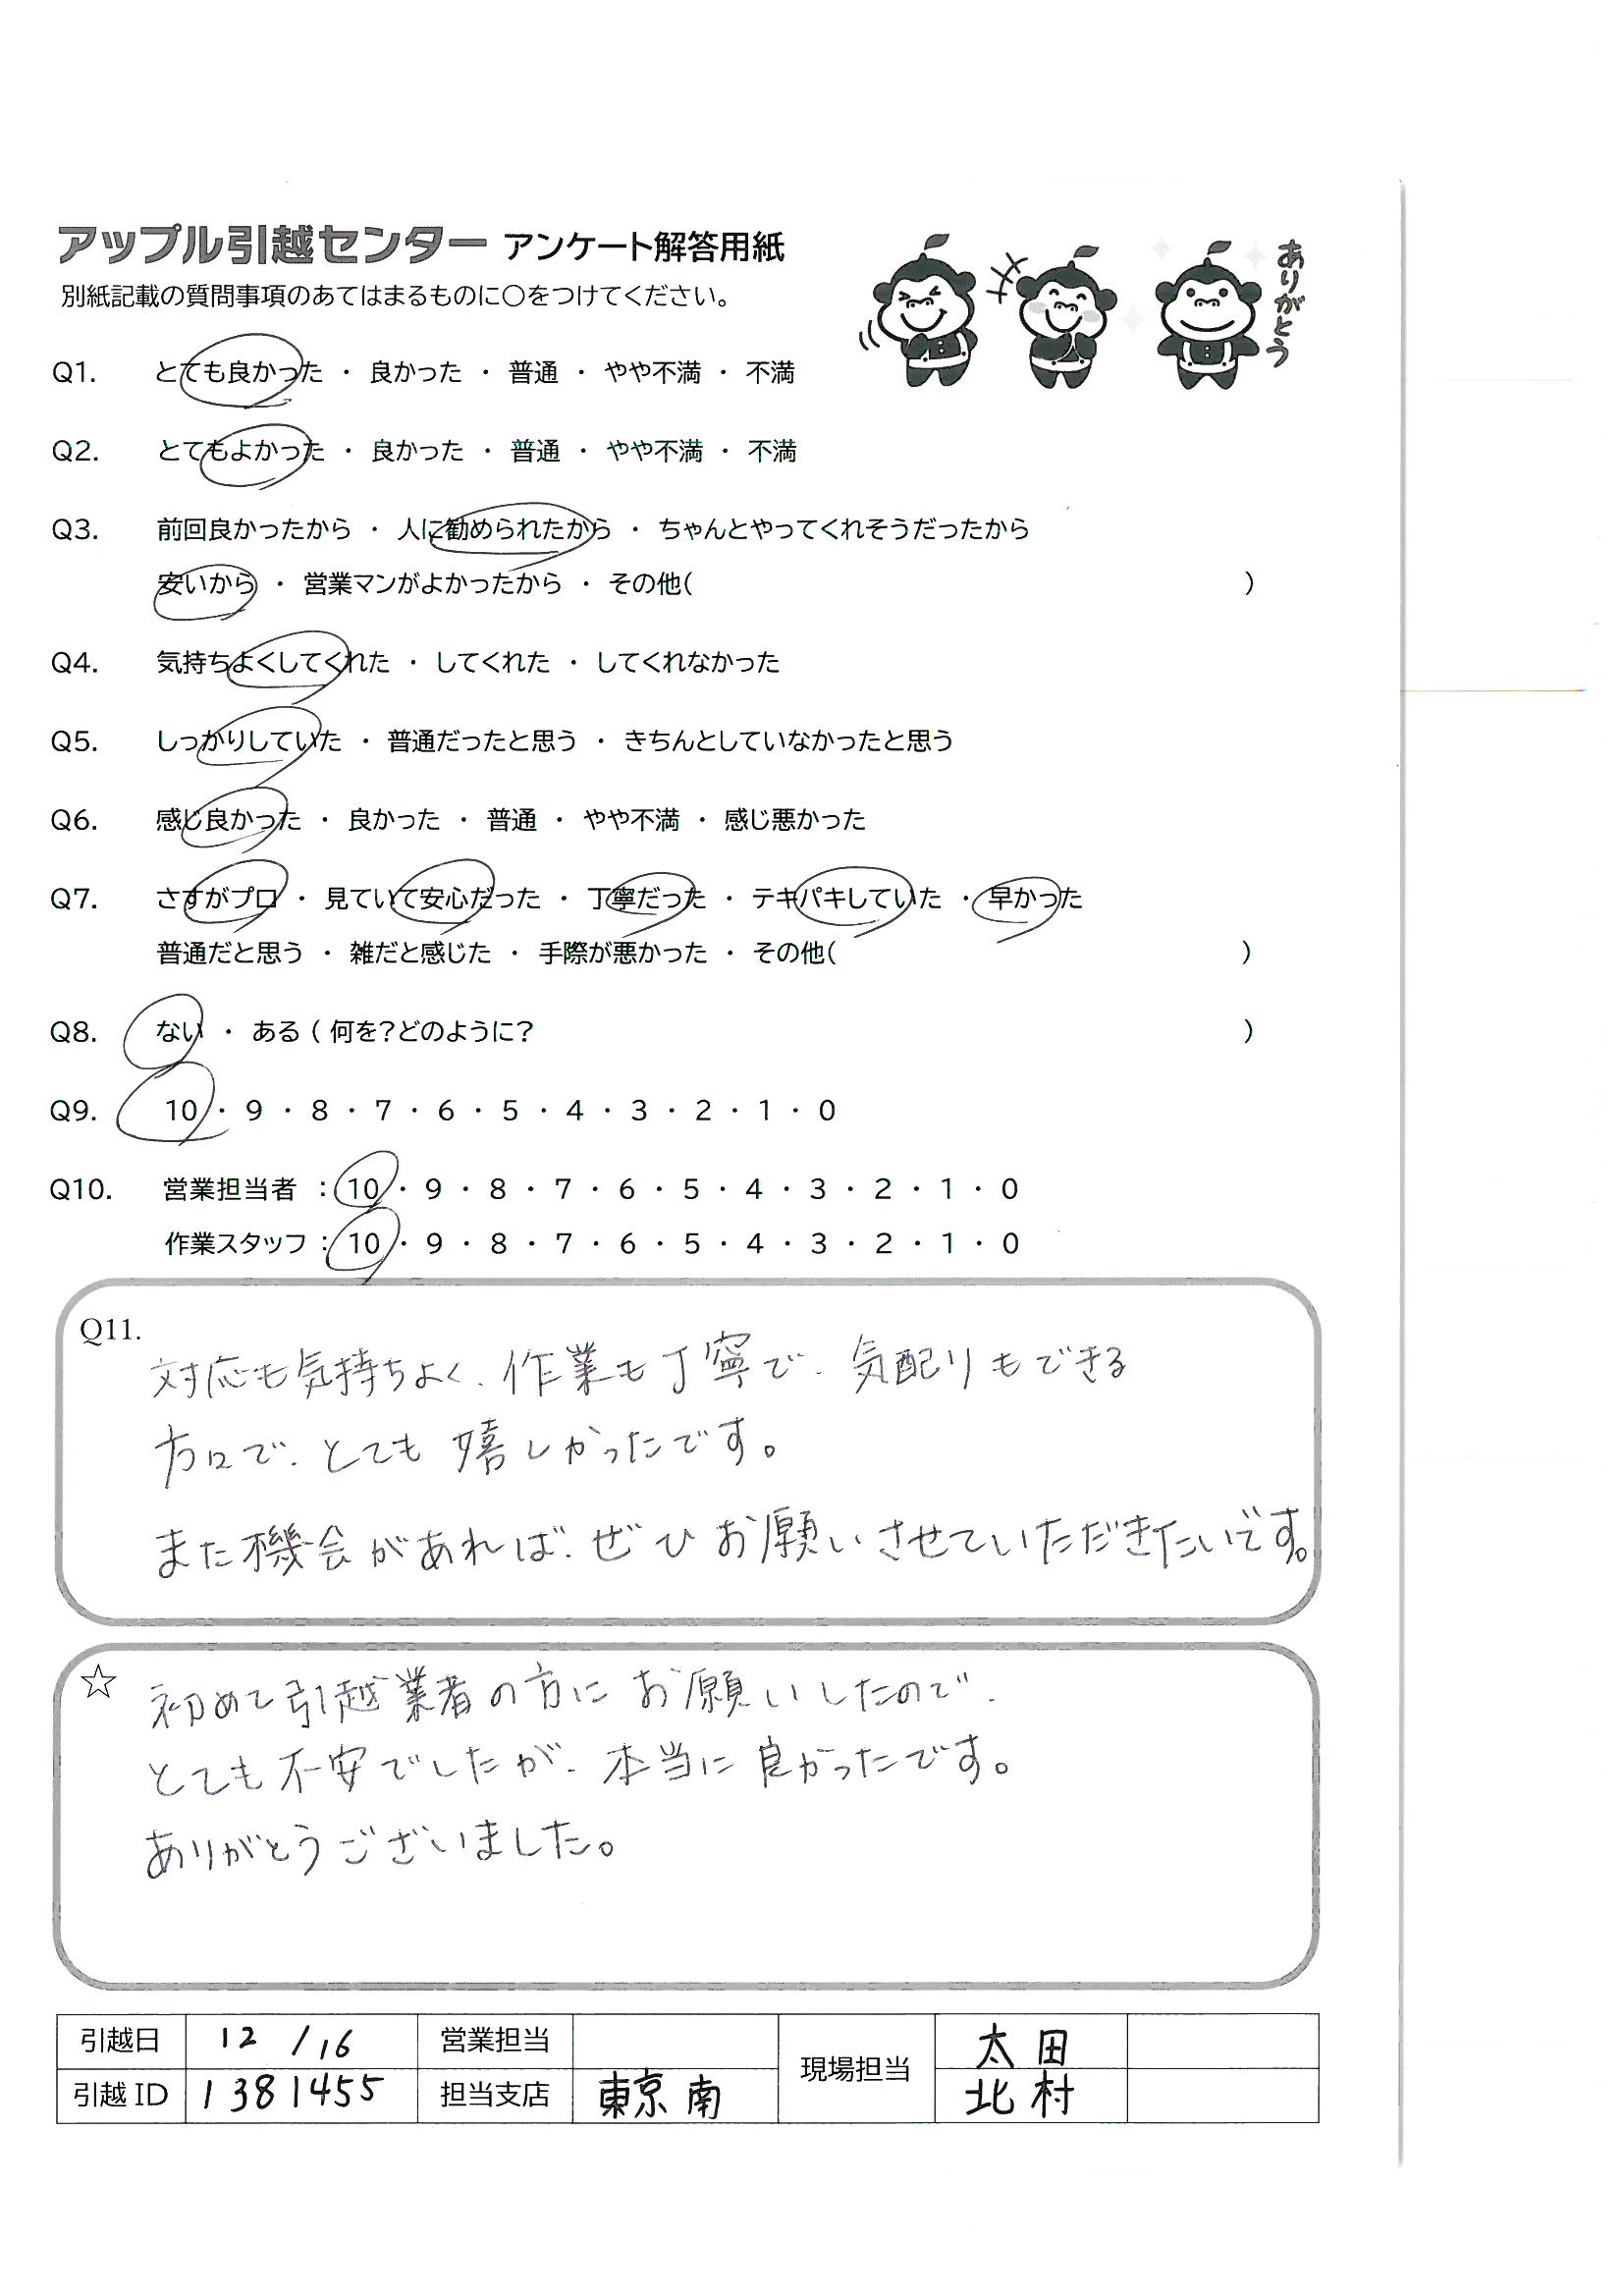 アップル引越センター アンケート解答用紙
別紙記載の質問事項のあてはまるものに○をつけてください。
ありがとう
Q1. とても良かった ・ 良かった ・ 普通 ・ やや不満 ・ 不満
Q2. とてもよかった ・ 良かった ・ 普通 ・ やや不満 ・ 不満
Q3. 前回良かったから ・ 人に勧められたから ・ ちゃんとやってくれそうだったから
安いから ・ 営業マンがよかったから ・ その他( )
Q4. 気持ちよくしてくれた ・ してくれた ・ してくれなかった
Q5. しっかりしていた ・ 普通だったと思う ・ きちんとしていなかったと思う
Q6. 感じ良かった ・ 良かった ・ 普通 ・ やや不満 ・ 感じ悪かった
Q7. さすがプロ ・ 見ていて安心だった ・ 丁寧だった ・ テキパキしていた ・ 早かった
普通だと思う ・ 雑だと感じた ・ 手際が悪かった ・ その他( )
Q8. ない ・ ある ( 何を?どのように? )
Q9. 10 ・ 9 ・ 8 ・ 7 ・ 6 ・ 5 ・ 4 ・ 3 ・ 2 ・ 1 ・ 0
Q10. 営業担当者 : 10 ・ 9 ・ 8 ・ 7 ・ 6 ・ 5 ・ 4 ・ 3 ・ 2 ・ 1 ・ 0
作業スタッフ : 10 ・ 9 ・ 8 ・ 7 ・ 6 ・ 5 ・ 4 ・ 3 ・ 2 ・ 1 ・ 0
Q11.
対応も気持ちよく、作業も丁寧で、気配りもできる
方々で、とても嬉しかったです。
また機会があれば、ぜひお願いさせていただきたいです。
☆ 初めて引越業者の方にお願いしたので、
とても不安でしたが、本当に良かったです。
ありがとうございました。
引越日 12 /16 営業担当 現場担当 太田
引越ID 1381455 担当支店 東京南 北村